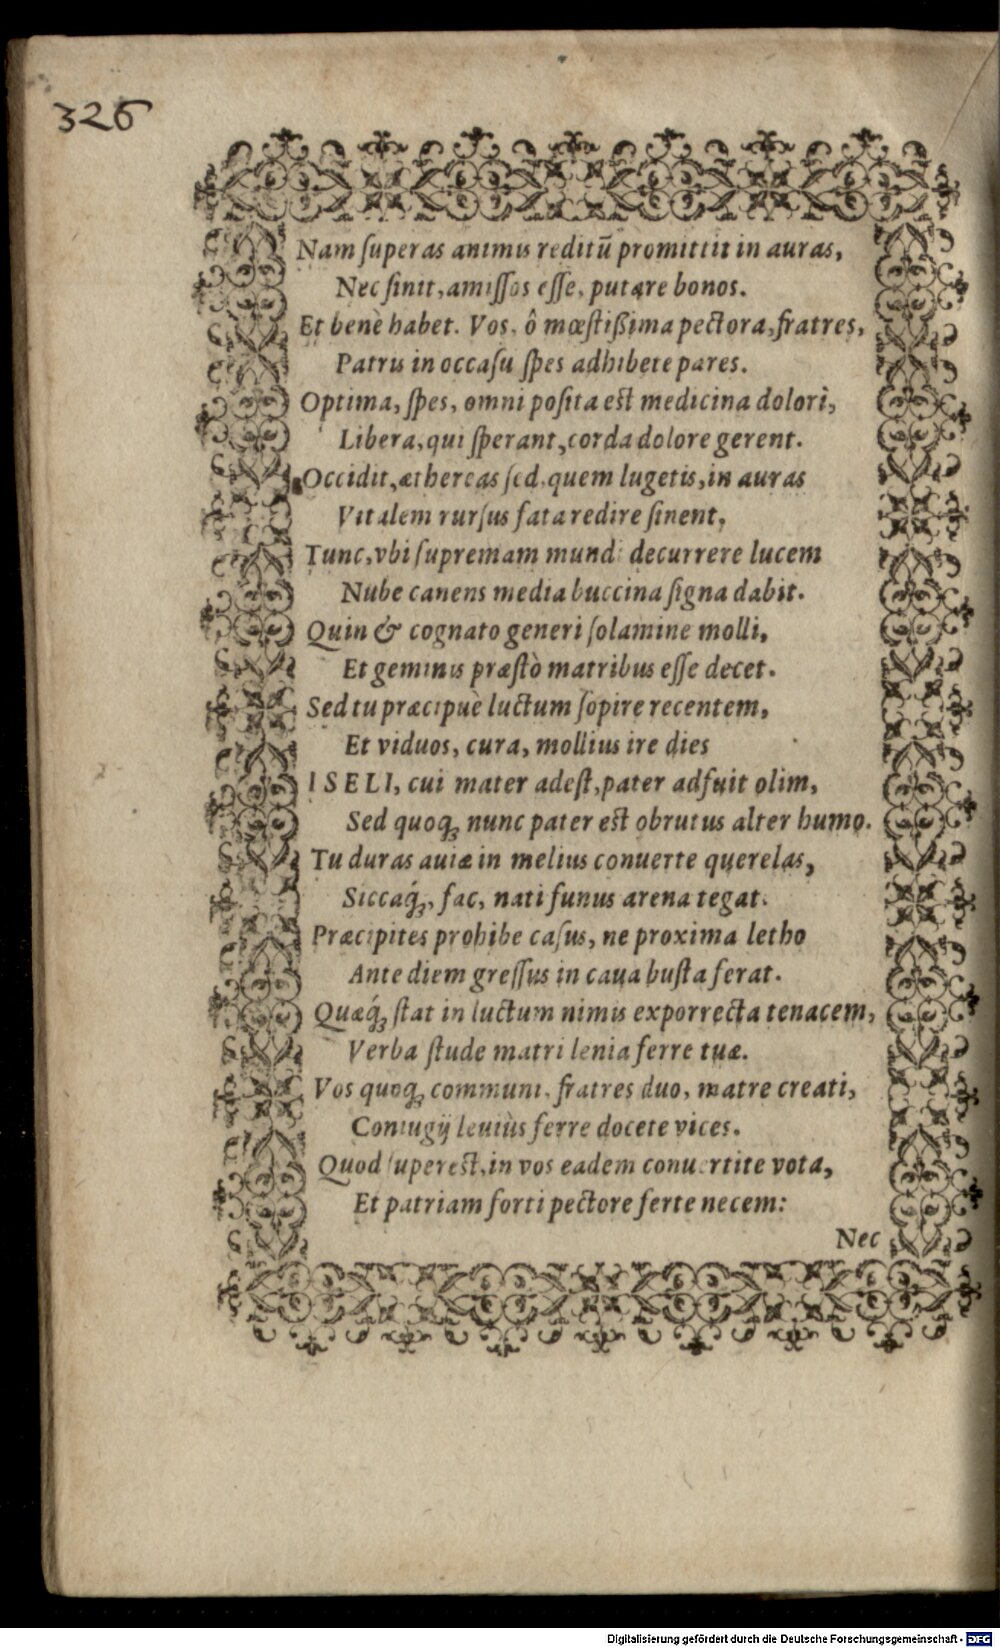 326
Nam ſuperas animis reditū promittit in auras,
Nec ſinit, amiſſos eſſe, putare bonos.
Et benè habet. Vos, ô mœſtißima pectora, fratres,
Patris in occaſu ſpes adhibete pares.
Optima, ſpes, omni poſita eſt medicina dolori,
Libera, qui ſperant, corda dolore gerent.
Occidit, æthereas ſed, quem lugetis, in auras
Vitalem rurſus fata redire ſinent,
Tunc, vbi ſupremam mundi decurrere lucem
Nube canens media buccina ſigna dabit.
Quin & cognato generi ſolamine molli,
Et geminis præſtò matribus eſſe decet.
Sed tu præcipuè luctum ſopire recentem,
Et viduos, cura, mollius ire dies
ISELI, cui mater adeſt, pater adfuit olim,
Sed quoq; nunc pater eſt obrutus alter humo.
Tu duras auiæ in melius conuerte querelas,
Siccaq́;, fac, nati funus arena tegat.
Præcipites prohibe caſus, ne proxima letho
Ante diem greſſus in caua buſta ferat.
Quæq́; ſtat in luctum nimis exporrecta tenacem,
Verba ſtude matri lenia ferre tuæ.
Vos quoq; communi, fratres duo, matre creati,
Coniugij leuiùs ferre docete vices.
Quod ſupereſt, in vos eadem conuertite vota,
Et patriam forti pectore ferte necem:
Nec
Digitalisierung gefördert durch die Deutsche Forschungsgemeinschaft - DFG